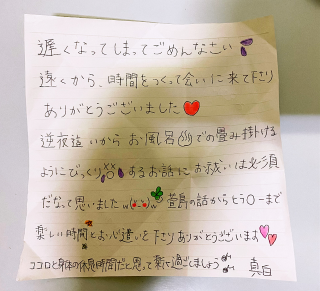 遅くなってしまってごめんなさい
遠くから、時間をつくって会いに来て下さり
ありがとうございました
逆夜這いからお風呂での畳み掛ける
ようにびっくりするお話にお祓いは必須
だなって思いましたw 萱島の話からヒラ○ーまで
楽しい時間とお心遣いを下さりありがとうございます
ココロと身体の休息時間だと思って楽に過ごしましょう 真白